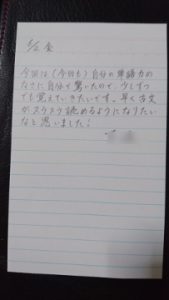 金
今回は(今回も)自分の単語力の
なさに自分で驚いたので、少しずつ
でも覚えていきたいです。早く古文
がスラスラ読めるようになりたい
なと思いました!